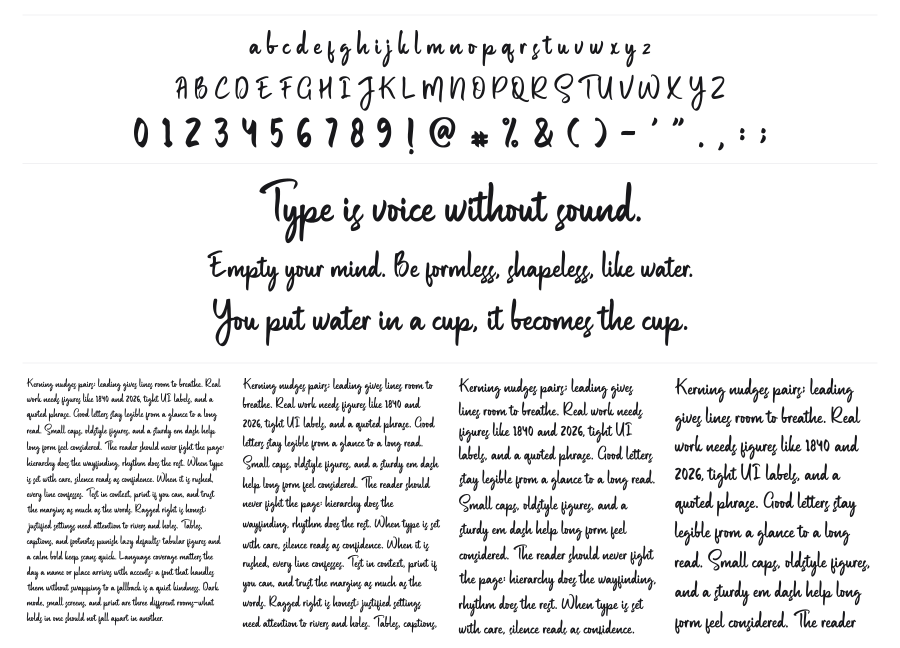 a b c d e f g h i j k l m n o p q r s t u v w x y z
A B C D E F G H I J K L M N O P Q R S T U V W X Y Z
0 1 2 3 4 5 6 7 8 9 ! @ # % & ( ) - ' " . , : ;
Type is voice without sound.
Empty your mind. Be formless, shapeless, like water.
You put water in a cup, it becomes the cup.
Kerning nudges pairs: leading gives lines room to breathe. Real
work needs figures like 1840 and 2026, tight UI labels, and a
quoted phrase. Good letters stay legible from a glance to a long
read. Small caps, oldstyle figures, and a sturdy em dash help
long form feel considered. The reader should never fight the page:
hierarchy does the wayfinding, rhythm does the rest. When type
is set with care, silence reads as confidence. When it is rushed,
every line confesses. Test in context, print if you can, and trust
the margins as much as the words. Ragged right is honest:
justified settings need attention to rivers and holes. Tables,
captions, and footnotes punish lazy defaults: tabular figures and
a calm bold keep scans quick. Language coverage matters the
day a name or place arrives with accents: a font that handles
them without swapping to a fallback is a quiet kindness. Dark
mode, small screens, and print are three different rooms—what
holds in one should not fall apart in another.
Kerning nudges pairs: leading gives lines room to
breathe. Real work needs figures like 1840 and
2026, tight UI labels, and a quoted phrase. Good
letters stay legible from a glance to a long read.
Small caps, oldstyle figures, and a sturdy em dash
help long form feel considered. The reader should
never fight the page: hierarchy does the
wayfinding, rhythm does the rest. When type is set
with care, silence reads as confidence. When it is
rushed, every line confesses. Test in context, print if
you can, and trust the margins as much as the
words. Ragged right is honest: justified settings
need attention to rivers and holes. Tables, captions,
Kerning nudges pairs: leading gives
lines room to breathe. Real work needs
figures like 1840 and 2026, tight UI
labels, and a quoted phrase. Good letters
stay legible from a glance to a long read.
Small caps, oldstyle figures, and a
sturdy em dash help long form feel
considered. The reader should never fight
the page: hierarchy does the wayfinding,
rhythm does the rest. When type is set
with care, silence reads as confidence.
Kerning nudges pairs: leading
gives lines room to breathe. Real
work needs figures like 1840 and
2026, tight UI labels, and a
quoted phrase. Good letters stay
legible from a glance to a long
read. Small caps, oldstyle figures,
and a sturdy em dash help long
form feel considered. The reader